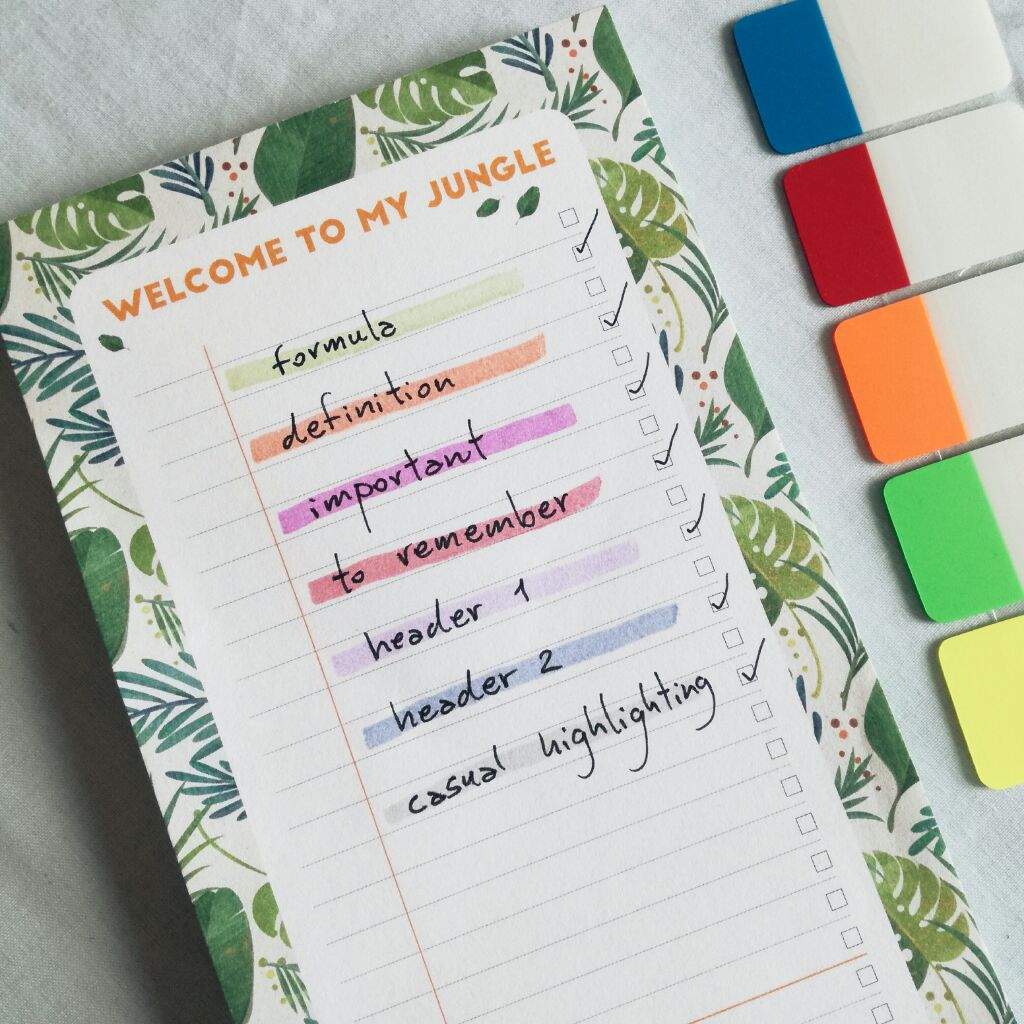 WELCOME TO MY JUNGLE
formula
definition
important
to remember
header 1
header 2
casual highlighting